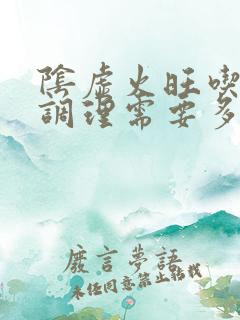 陰虛火旺喫
調理需要多
廢言夢語
未任同意禁止轉載